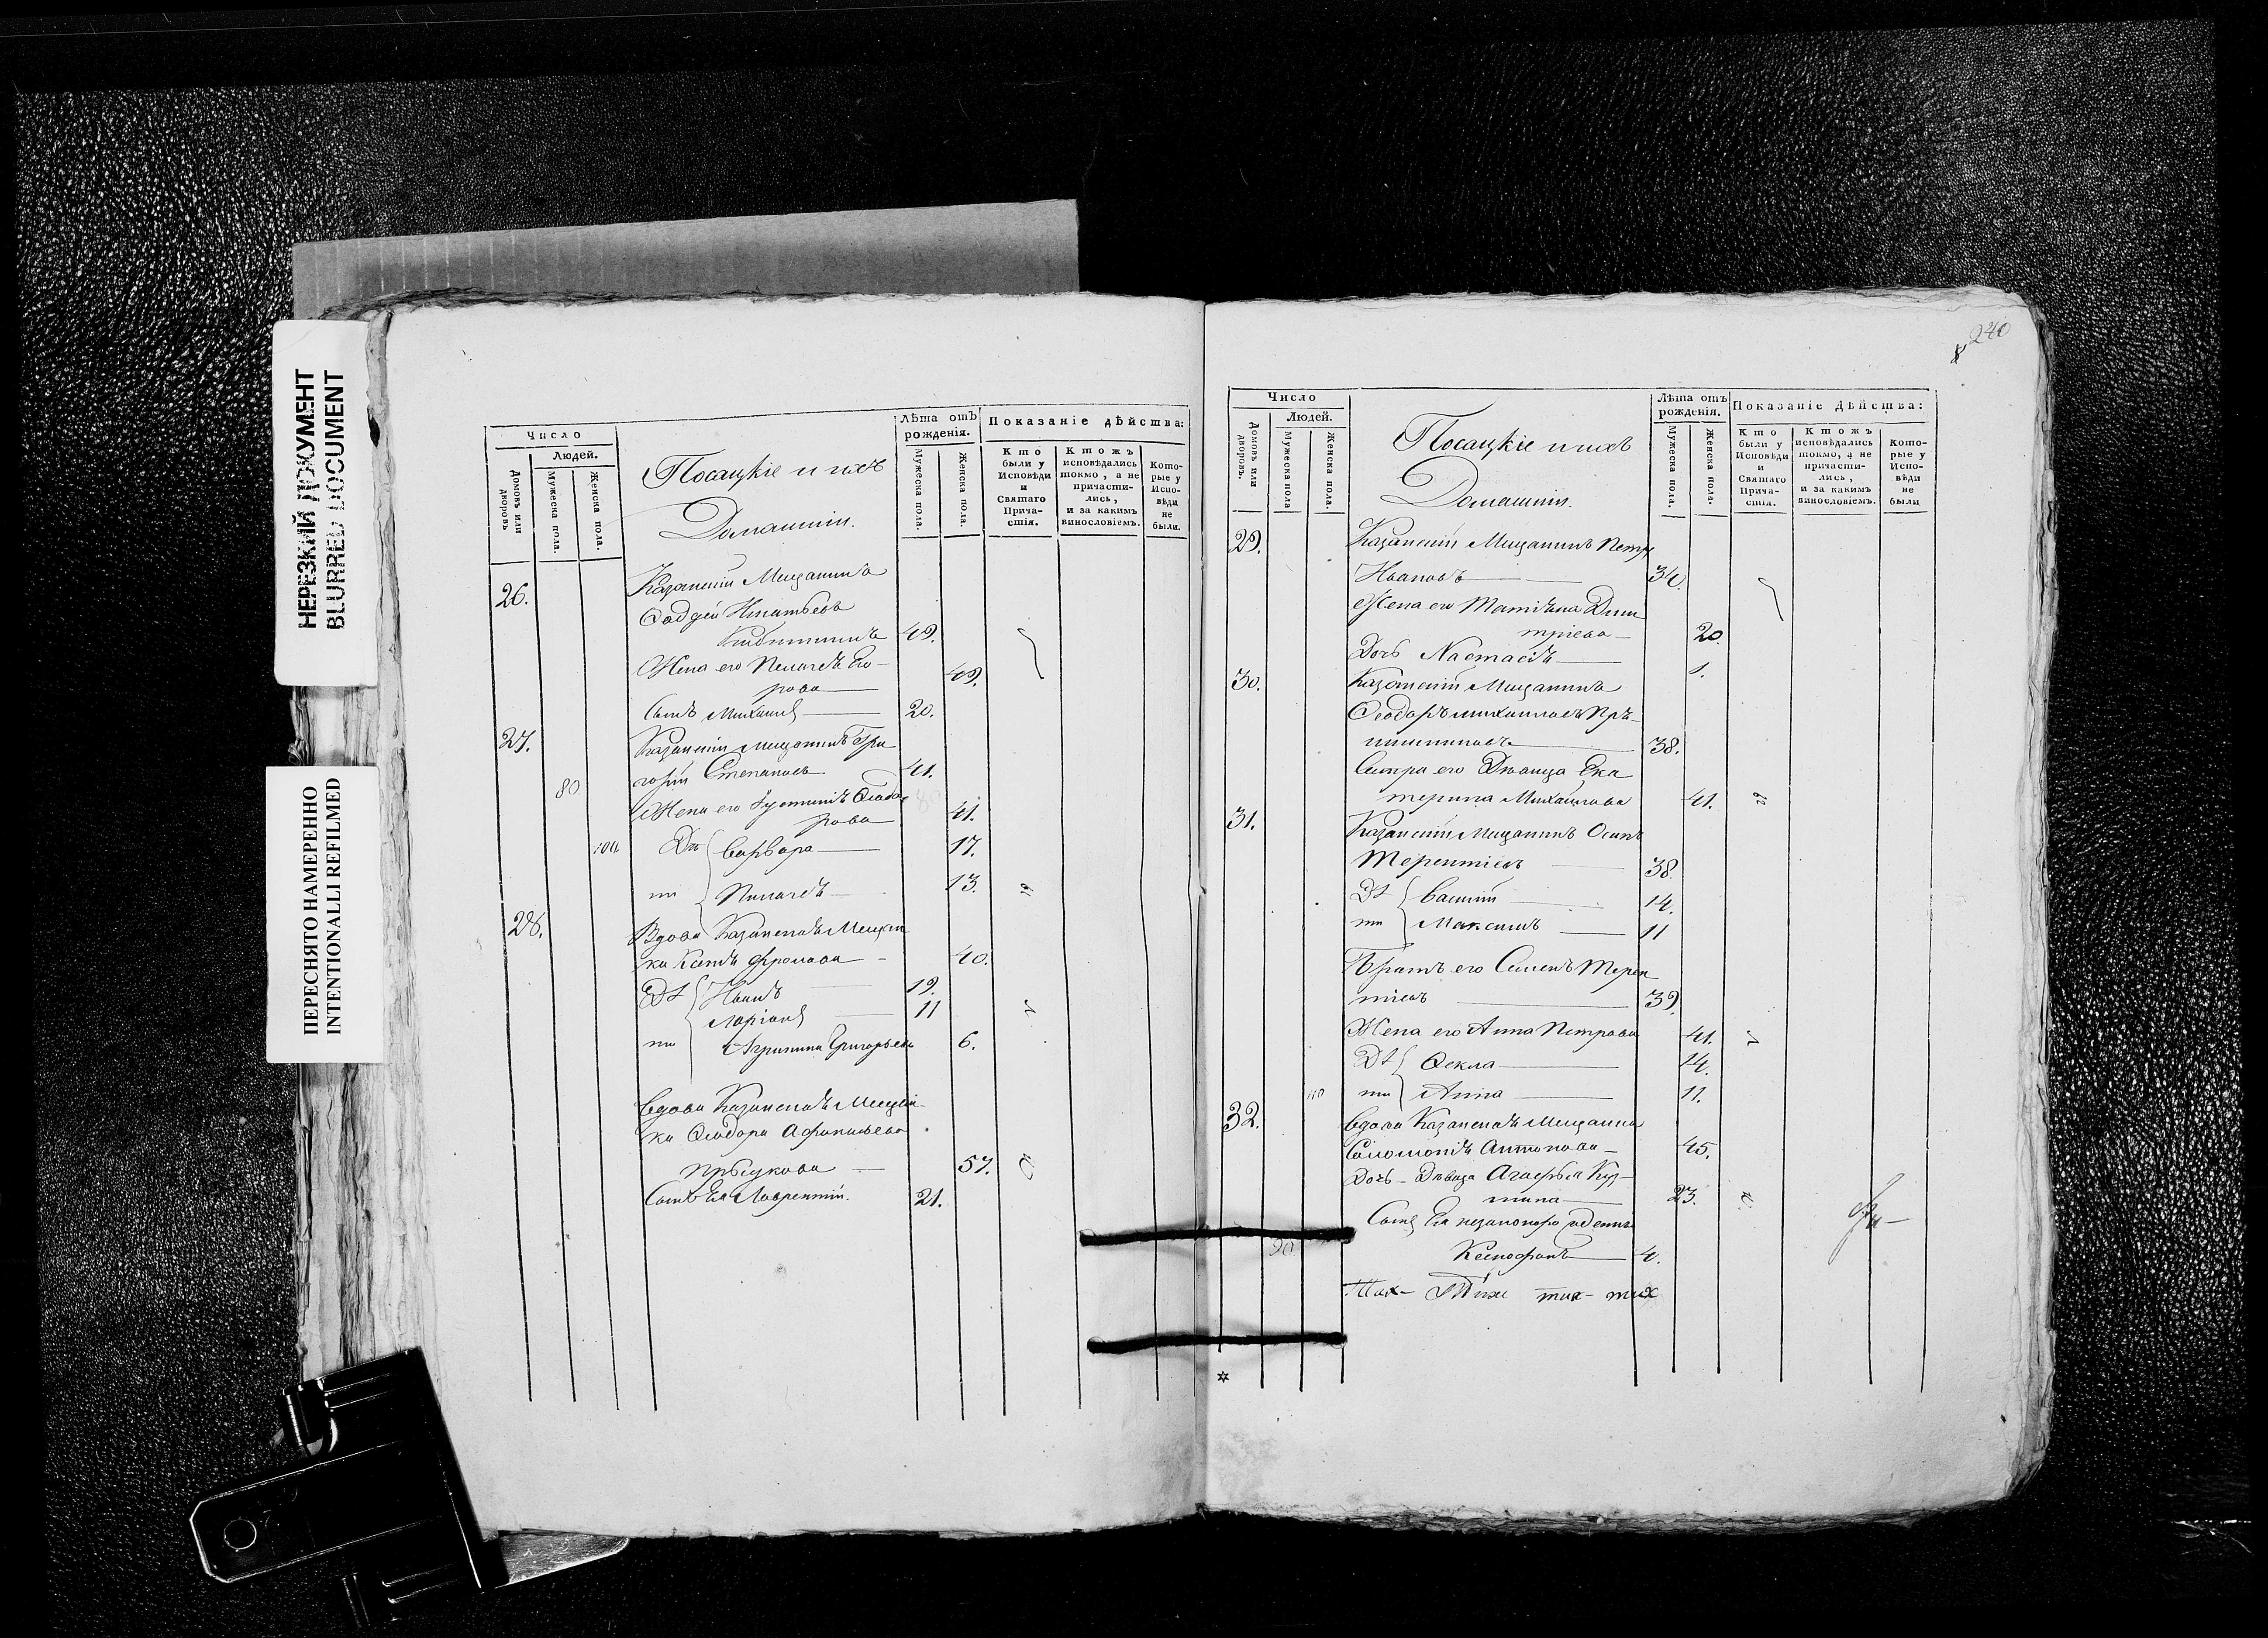 НЕРЕЗКИЙ ДОКУМЕНТ
BLURRED DOCUMENT
ПЕРЕСНЯТО НАМЕРЕННО
INTENTIONALLI REFILMED
Число
Людей.
Домовъ или дворовъ
Мужеска пола.
Женска пола.
Посацкіе и ихъ
Домашніи.
Лѣта отъ рожденія.
Мужеска пола.
Женска пола.
Показаніе дѣйства:
Кто были у Исповѣди и Святаго Причастія.
Ктожъ исповѣдались токмо, а не причастились, и за какимъ винословіемъ.
Которые у Исповѣди не были.
26. Казанскій Мещанинъ
Фаддей Игнатьевъ
49.
Жена его Пелагеѣ Его-
рова 49.
Сынъ Михаилъ 20.
27. Казанскій Мещанинъ Гри
горій Степановъ 41.
80
Жена его Устиніѣ Ѳеодо
рова 41.
100
Дѣ Варвара 17.
ти Пелагеѣ 13.
28. Вдова Казанскаѣ Мещан
ка Ксеніѣ Фролова 40.
Дѣ Иванъ 19.
Ларіонъ 11
ти Агрипина Григорьева 6.
Вдова Казанскаѣ Мещан-
ка Ѳеодора Афонасьева
57.
Сынъ Ея Лаврентій. 21.
240
Число
Людей.
Домовъ или дворовъ.
Мужеска пола
Женска пола.
Посацкіе и ихъ
Домашніи.
Лѣта отъ рожденія.
Мужеска пола.
Женска пола.
Показаніе дѣйства:
Кто были у Исповѣди и Святаго Причастія.
Ктожъ исповѣдались токмо, а не причастились, и за какимъ винословіемъ.
Которые у Исповѣди не были
29. Казанскій Мещанинъ Петръ
Ивановъ 34.
Жена его Татіѣна Дми
тріева 20.
Дочь Настасіѣ 1.
30. Казанскій Мещанинъ
Ѳеодоръ Михаиловъ Прѣ-
38.
Сестра его Дѣвица Ека
терина Михайлова 41.
31. Казанскій Мещанинъ Осипъ
Терентіевъ 38.
Дѣ Василій 14.
ти Максимъ 11
Братъ его Семенъ Терен
тіевъ 39.
Жена его Анна Петрова 41.
Дѣ Ѳекла 14.
110
ти Анна 11.
32. Вдова Казанскаѣ Мещанка
Соломоніѣ Антонова 45.
Дочь Дѣвица Агафья Куз-
мина 23.
Сынъ Ея незаконорожденъ
90
Ксенофонъ 4.